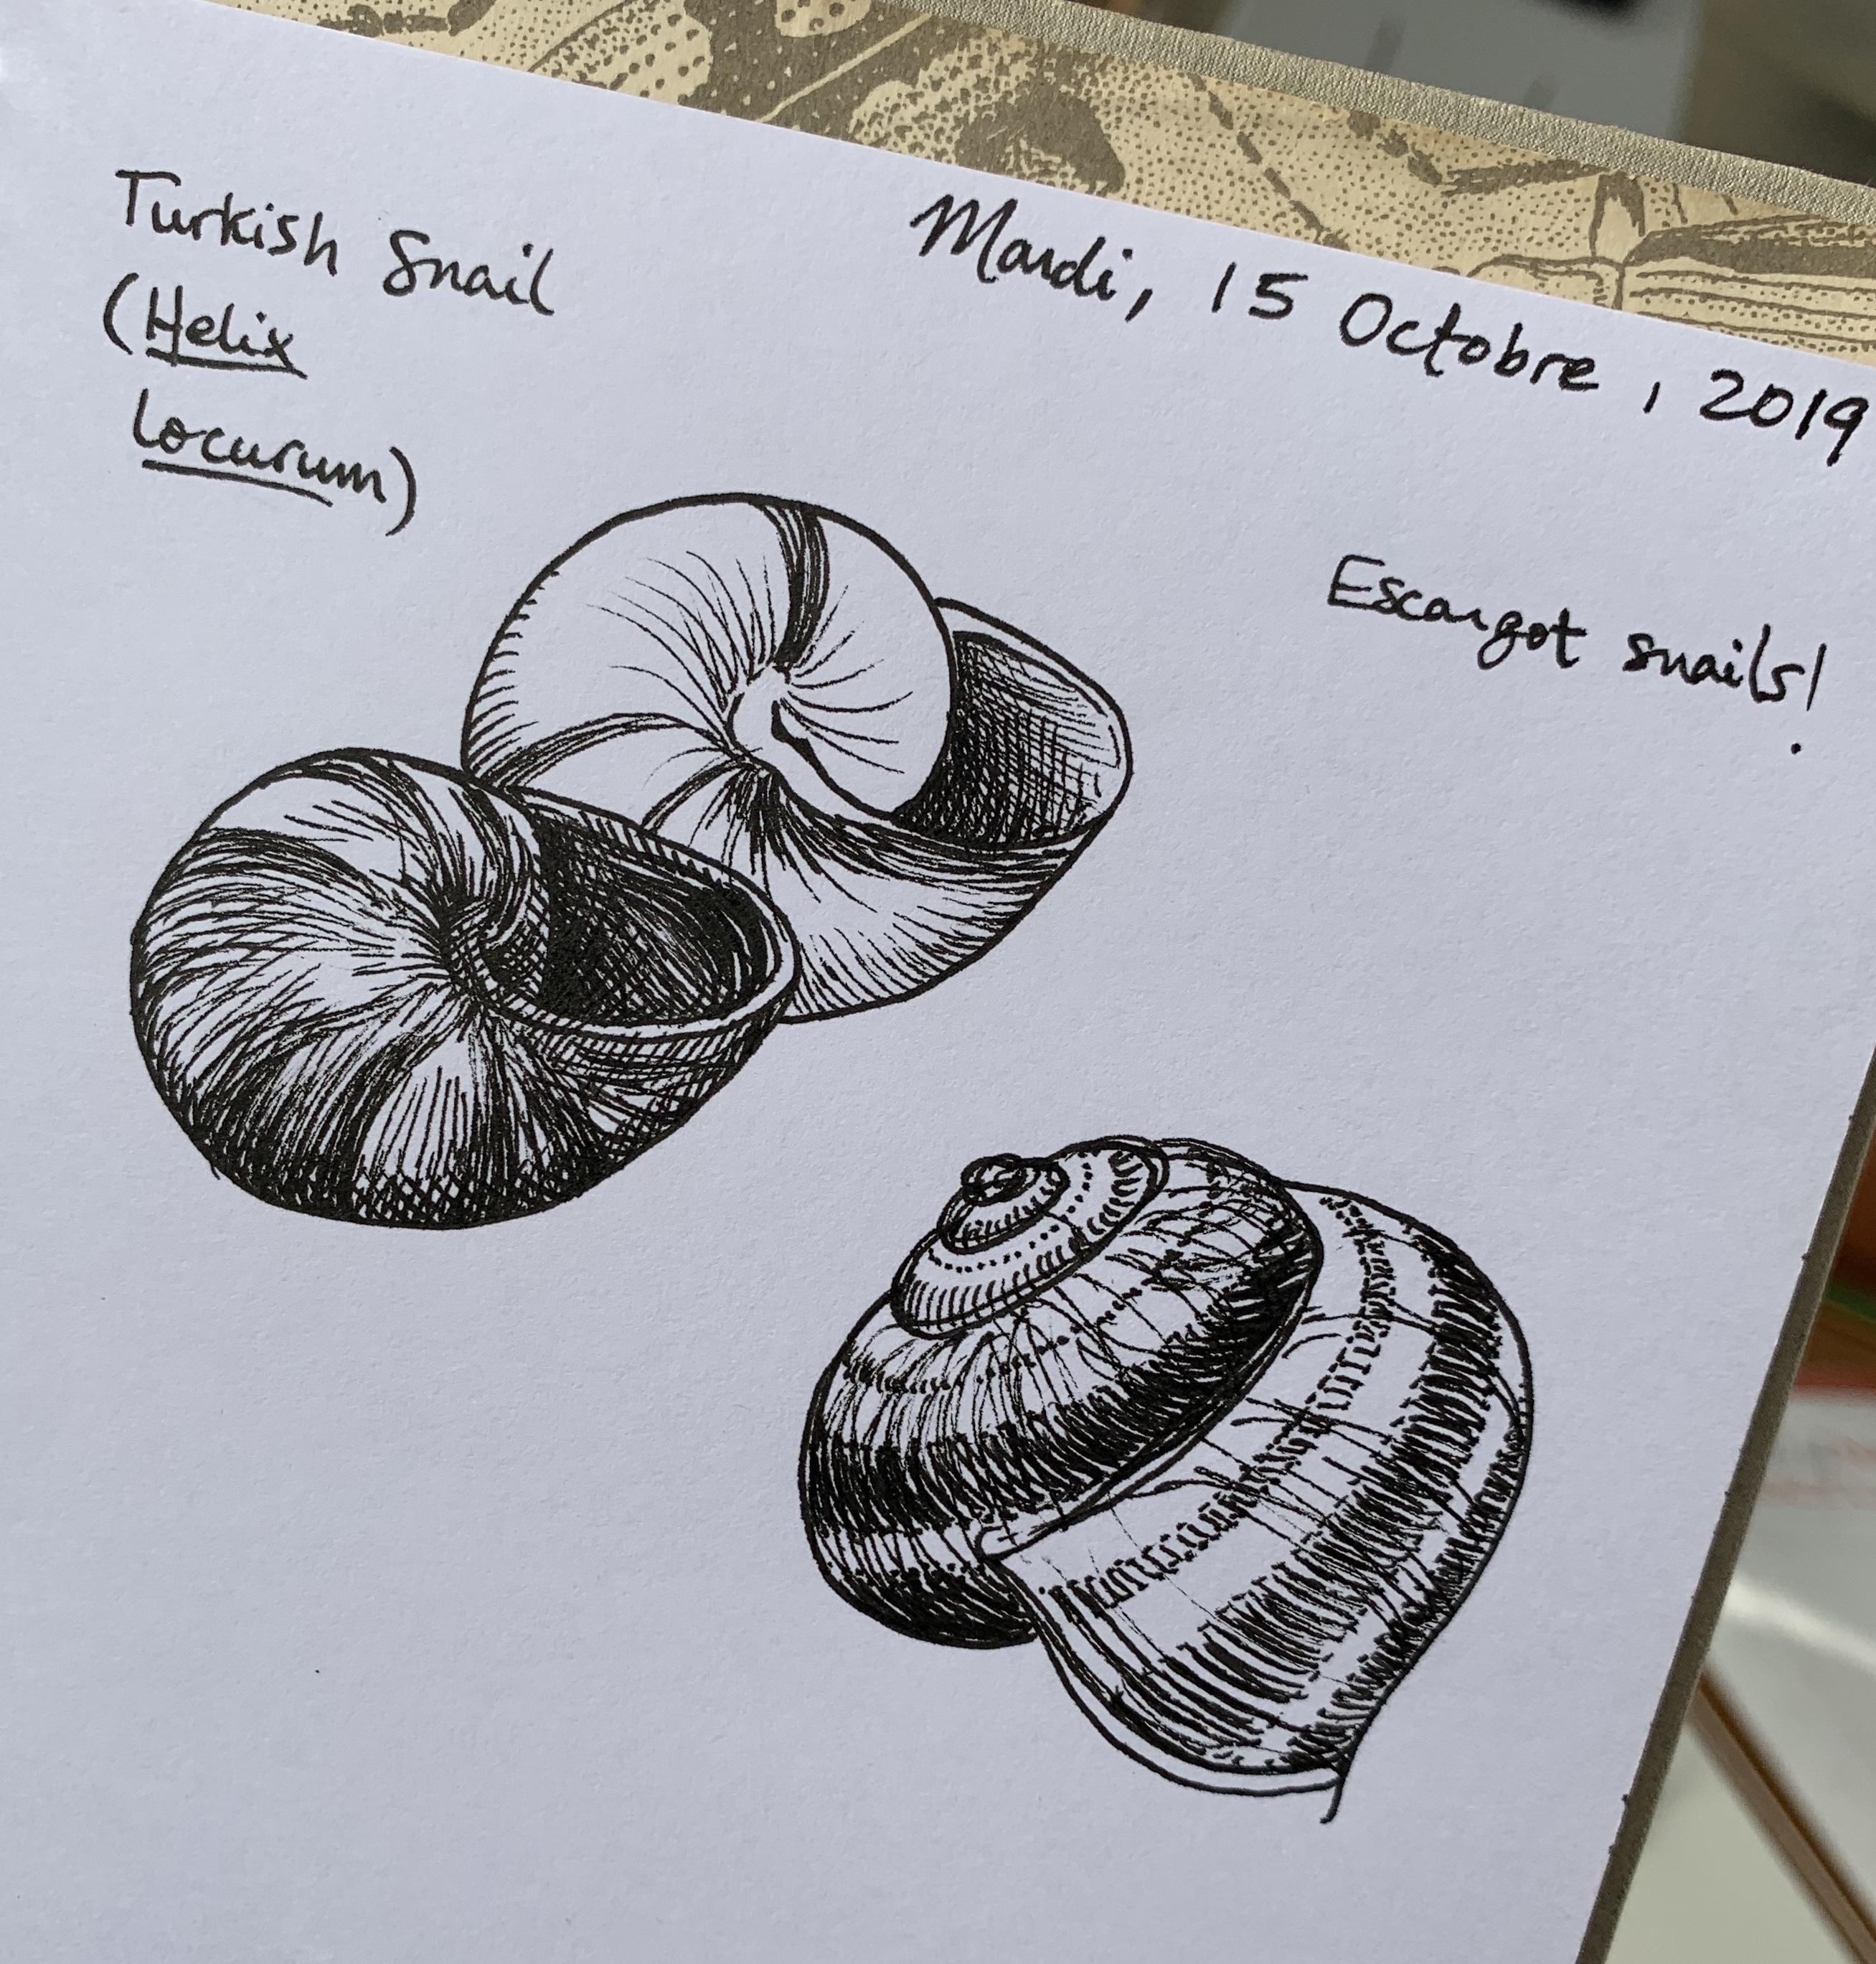 Turkish Snail
(Helix
locurum)
Mardi, 15 Octobre, 2019
Escargot snails!